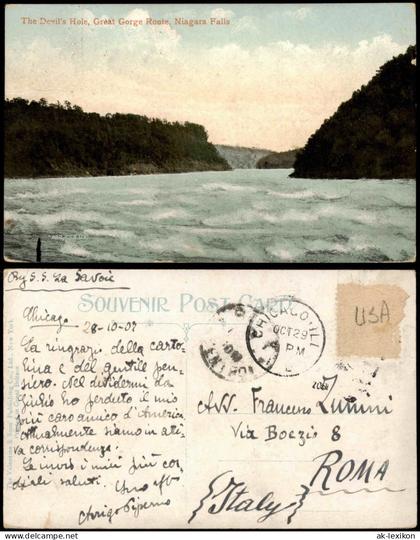 The Devil's Hole, Great Gorge Route, Niagara Falls
By S.S. La Savoie
SOUVENIR POST CARD
Chicago, 28-10-07
La ringrazio della carto-
lina e del gentile pen-
siero. Nel
Giulio ho perduto il mio
più caro amico d'America
Attualmente siamo in atti-
va corrispondenza.
Le invio i miei più cor-
diali saluti. Suo aff
Arrigo Piperno
CHICAGO, ILL
OCT 29
PM
USA
Avv. Francesco
Via Boezio 8
ROMA
(Italy)
ak-lexikon.de